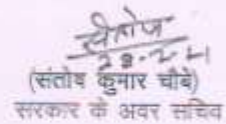 संतोष
28.2.21
(संतोष कुमार चौबे)
सरकार के अवर सचिव